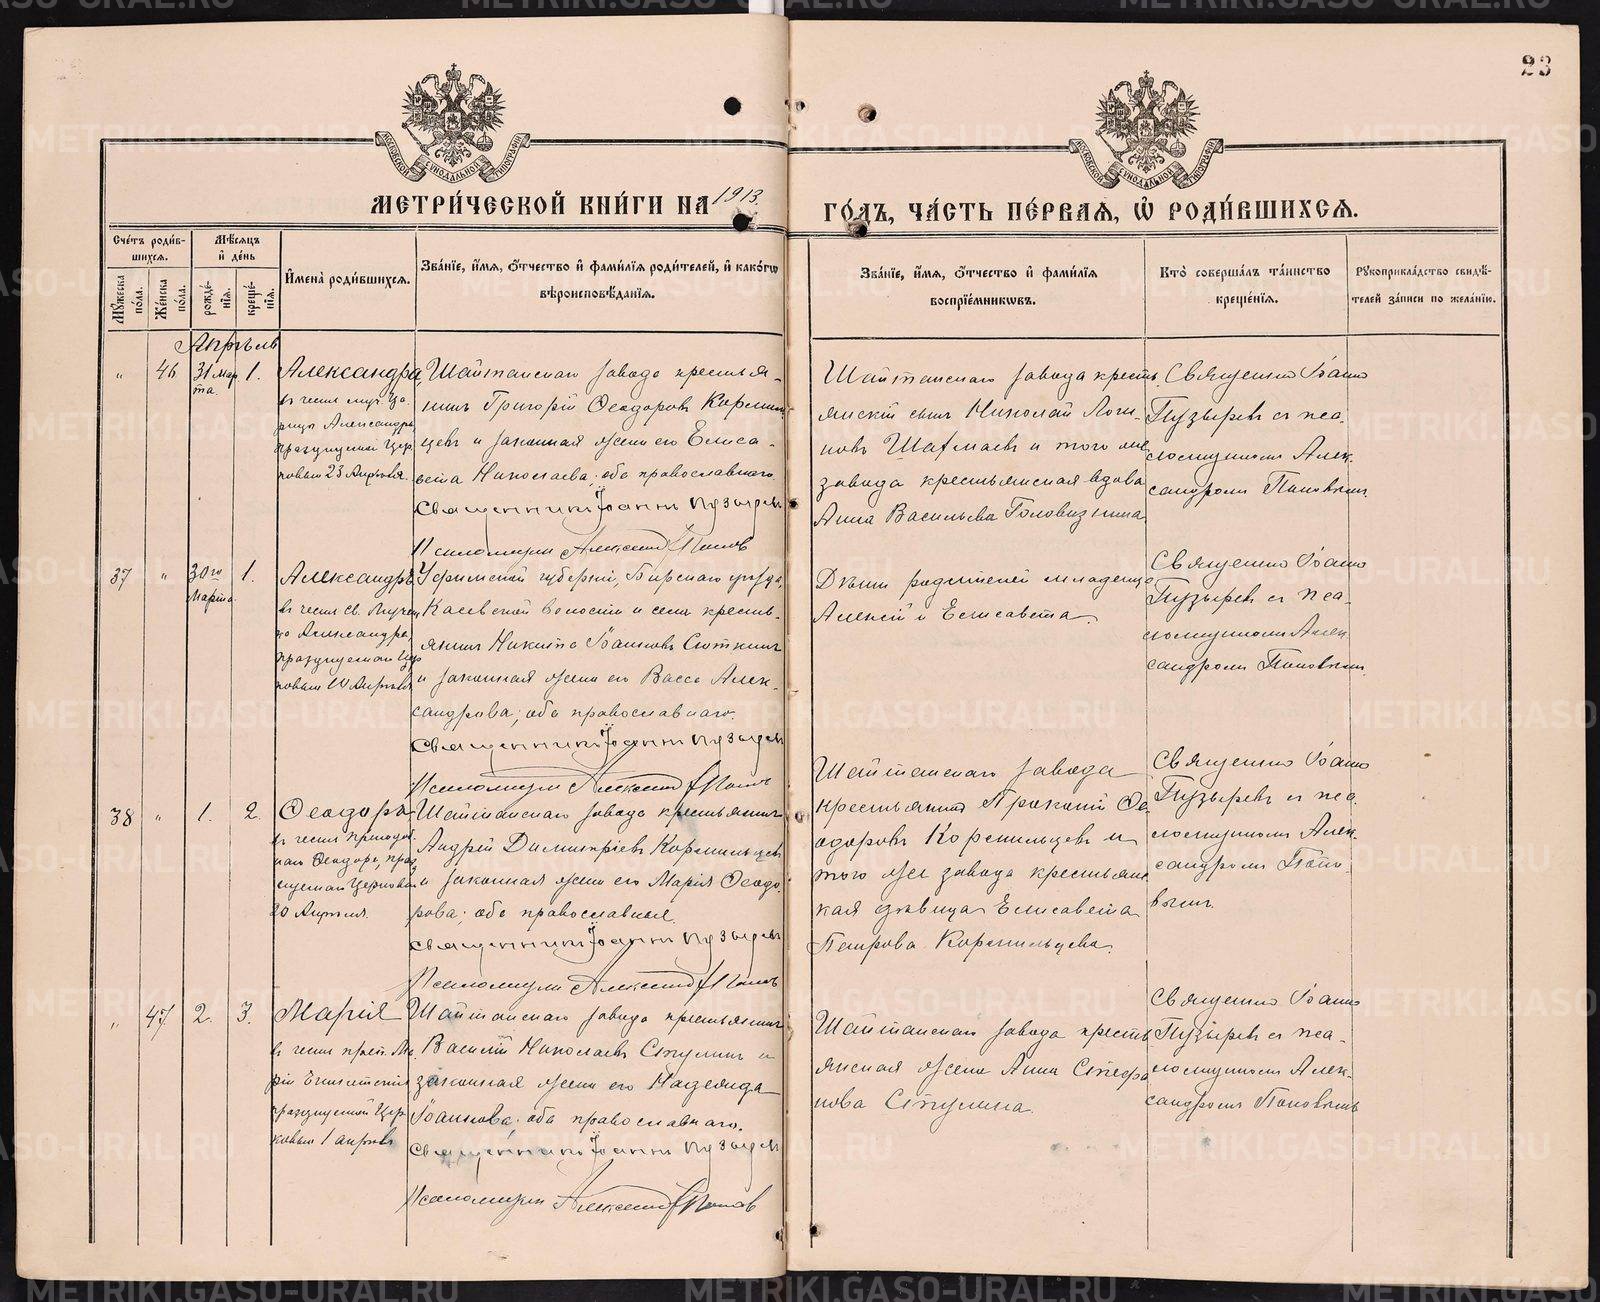 23
МОСКОВСКОЙ СѴНОДАЛЬНОЙ ТИПОГРАФІИ
МОСКОВСКОЙ СѴНОДАЛЬНОЙ ТИПОГРАФІИ
МЕТРИ́ЧЕСКОЙ КНИ́ГИ НА 1913.
ГО́ДЪ, ЧА́СТЬ ПЕ́РВАѦ, Ѡ҆ РОДИ́ВШИХСѦ.
Сче́тъ роди́в-
шихсѧ.
Мꙋ́жеска по́ла.
Же́нска по́ла.
Мѣ́сѧцъ
и҆ де́нь
рожде́-
нїѧ.
креще́-
нїѧ.
И҆мена̀ роди́вшихсѧ.
Зва́нїе, и҆́мѧ, ѻ҆́тчество и҆ фами́лїѧ роди́телей, и҆ како́гѡ
вѣроисповѣ́данїѧ.
Зва́нїе, и҆́мѧ, ѻ҆́тчество и҆ фами́лїѧ
воспрїе́мникѡвъ.
Кто̀ соверша́лъ та́инство
креще́нїѧ.
Рꙋкоприкла́дство свидѣ́-
телей за́писи по жела́нїю.
Апрѣль
" 46 31 Мар
та. 1.
Александра
въ честь муч. Ца-
рицы Александры
празднуемой Цер
ковью 23 Апрѣля.
Шайтанскаго завода крестья-
нинъ Григорій Ѳеодоровъ Кормиль
цевъ и законная жена его Елиса-
вета Николаева; оба православнаго.
Священникъ Іоаннъ Пузыревъ
Псаломщикъ Александръ Поповъ
Шайтанскаго завода кресть
янскій сынъ Николай Логи
новъ Шахмаевъ и того же
завода крестьянская вдова
Анна Васильева Головизнина
Священникъ Іоаннъ
Пузыревъ съ пса-
ломщикомъ Алек-
сандромъ Поповымъ.
37 " 30го
Марта 1.
Александръ
въ честь св. Мучен
ка Александра,
празднуемаго Цер
ковью 10 Апрѣля
Уфимской губерніи, Бирскаго уѣзда,
Касевской волости и села кресть-
янинъ Никита Іоанновъ Сюткинъ
и законная жена его Васса Алек-
сандрова; оба православнаго.
Священникъ Іоаннъ Пузыревъ
Псаломщикъ Александръ Поповъ
Дѣти родителей младенца
Алексій и Елисавета.
Священникъ Іоаннъ
Пузыревъ съ пса-
ломщикомъ Алек-
сандромъ Поповымъ.
38 " 1. 2.
Ѳеодоръ
въ честь Преподоб-
наго Ѳеодора, праз
нуемаго Церковью
20 Апрѣля.
Шайтанскаго завода крестьянинъ
Андрей Димитріевъ Кормильцевъ
и законная жена его Марія Ѳеодо-
рова; оба православныя.
Священникъ Іоаннъ Пузыревъ
Псаломщикъ Александръ Поповъ
Шайтанскаго завода
крестьянинъ Прокопій Ѳе
одоровъ Кормильцевъ и
того же завода крестьянс
кая дѣвица Елисавета
Петрова Кормильцева.
Священникъ Іоаннъ
Пузыревъ съ пса-
ломщикомъ Алек-
сандромъ Попо-
вымъ.
" 47 2. 3.
Марія
въ честь преп. Ма
ріи Египетскія
празднуемой Цер
ковью 1 апрѣля
Шайтанскаго завода крестьянинъ
Василій Николаевъ Стулинъ и
законная жена его Надежда
Іоаннова; оба православнаго.
Священникъ Іоаннъ Пузыревъ
Псаломщикъ Александръ Поповъ
Шайтанскаго завода кресть
янская жена Анна Стефа
нова Стулина.
Священникъ Іоаннъ
Пузыревъ съ пса-
ломщикомъ Алек-
сандромъ Поповымъ
METRIKI.GASO-URAL.RU